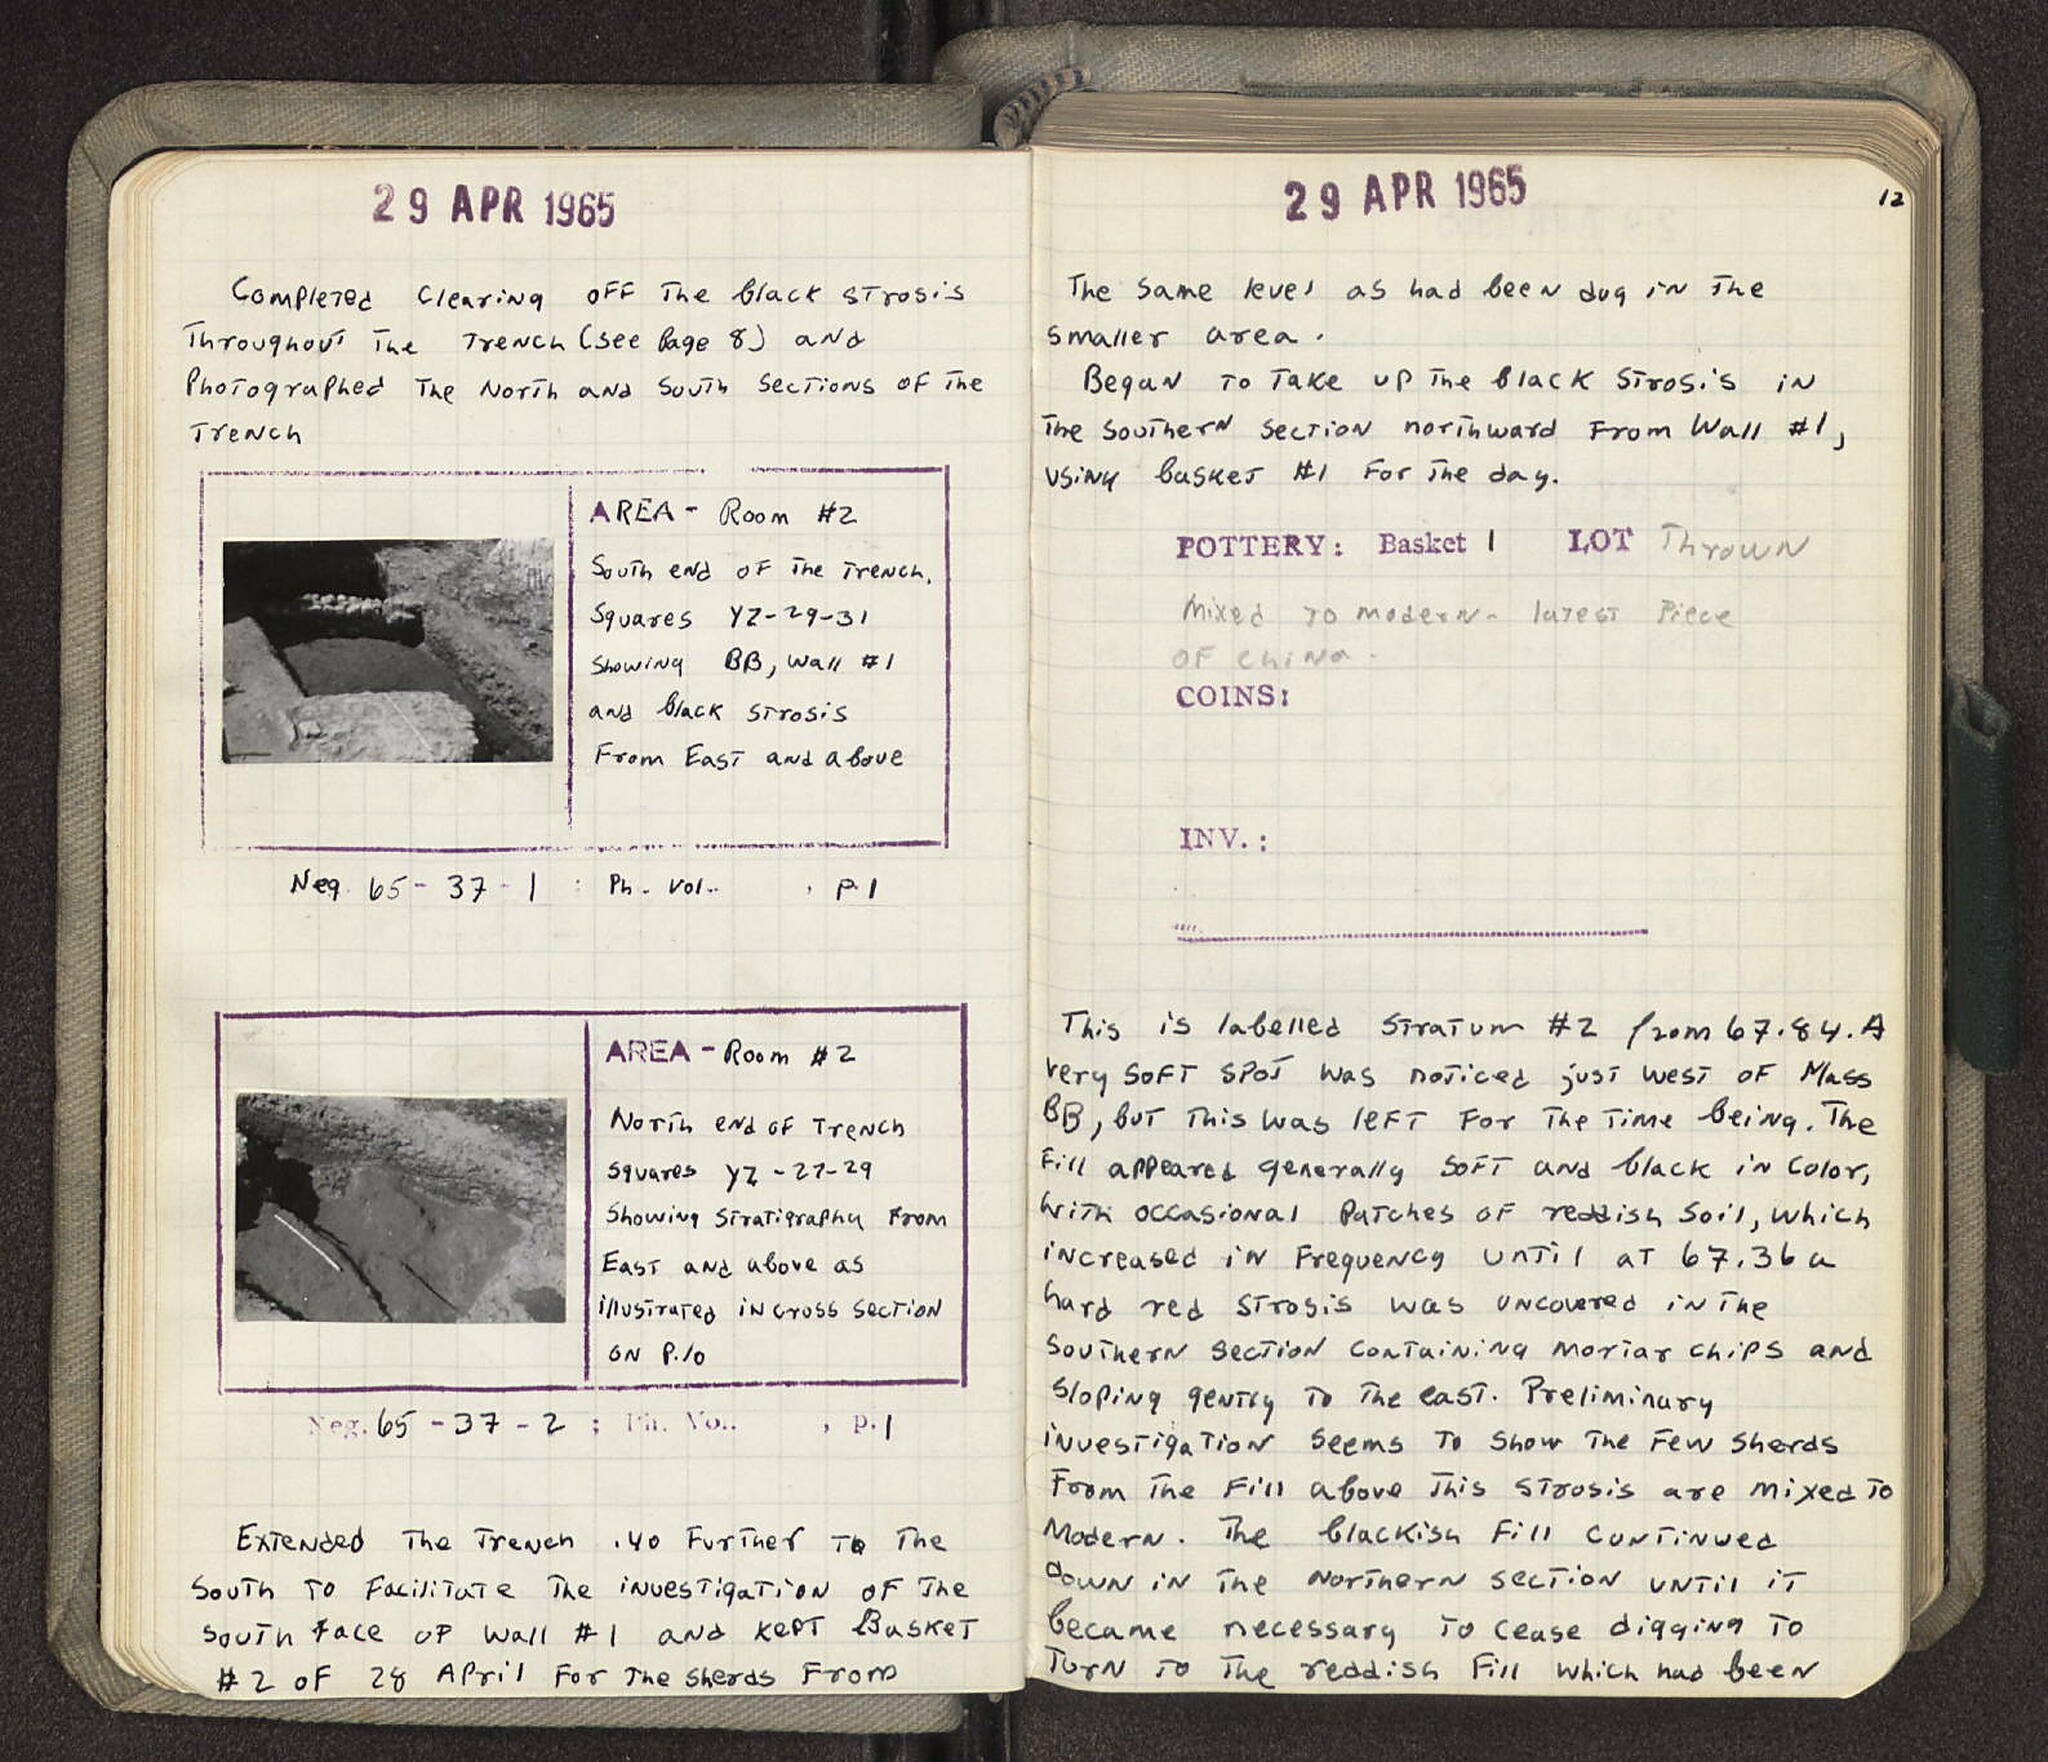 29 APR 1965
Completed clearing off the black strosis
throughout the trench (see Page 8) and
Photographed the North and South Sections of the
trench
AREA - Room #2
South end of the trench.
Squares YZ-29-31
showing BB, wall #1
and black strosis
From East and above
Neg. 65-37-1 : Ph. Vol.. , p.1
AREA - Room #2
North end of trench
squares YZ-27-29
showing stratigraphy from
East and above as
illustrated in cross section
on P.10
Neg. 65-37-2 ; Ph. Vo.. , p.1
Extended the trench .40 further to the
South to facilitate the investigation of the
south face of wall #1 and kept Basket
#2 of 28 April for the sherds from
29 APR 1965
12
the same level as had been dug in the
smaller area.
Began to take up the black strosis in
the southern section northward from Wall #1,
using basket #1 for the day.
POTTERY: Basket 1 LOT Thrown
Mixed to modern - latest piece
of china.
COINS:
INV.:
This is labelled stratum #2 from 67.84. A
very soft spot was noticed just west of Mass
BB, but this was left for the time being. The
fill appeared generally soft and black in color,
with occasional patches of reddish soil, which
increased in frequency until at 67.36 a
hard red strosis was uncovered in the
southern section containing mortar chips and
sloping gently to the east. Preliminary
investigation seems to show the few sherds
from the fill above this strosis are mixed to
Modern. The blackish fill continued
down in the northern section until it
became necessary to cease digging to
turn to the reddish fill which had been